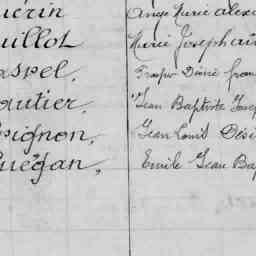 uérin Ange Marie Alex
uillot Marie Joseph
aspel. Prosper Désiré Fran
autier. Jean Baptiste Jose
pignon. Jean Louis Dési
Guégan. Emile Jean Bap